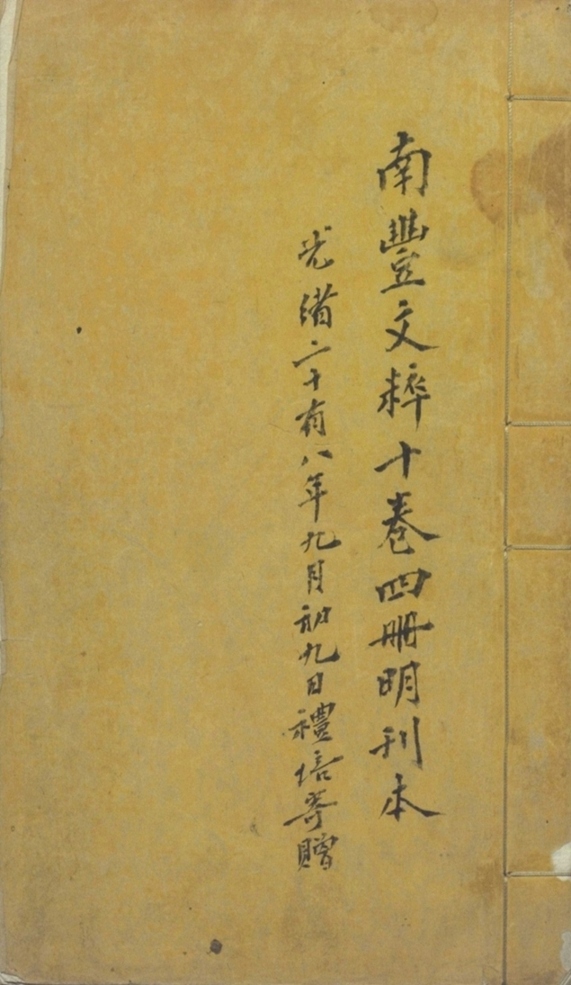 南豐文粹十卷四冊明刊本
光緒二十有八年九月初九日禮培寄贈